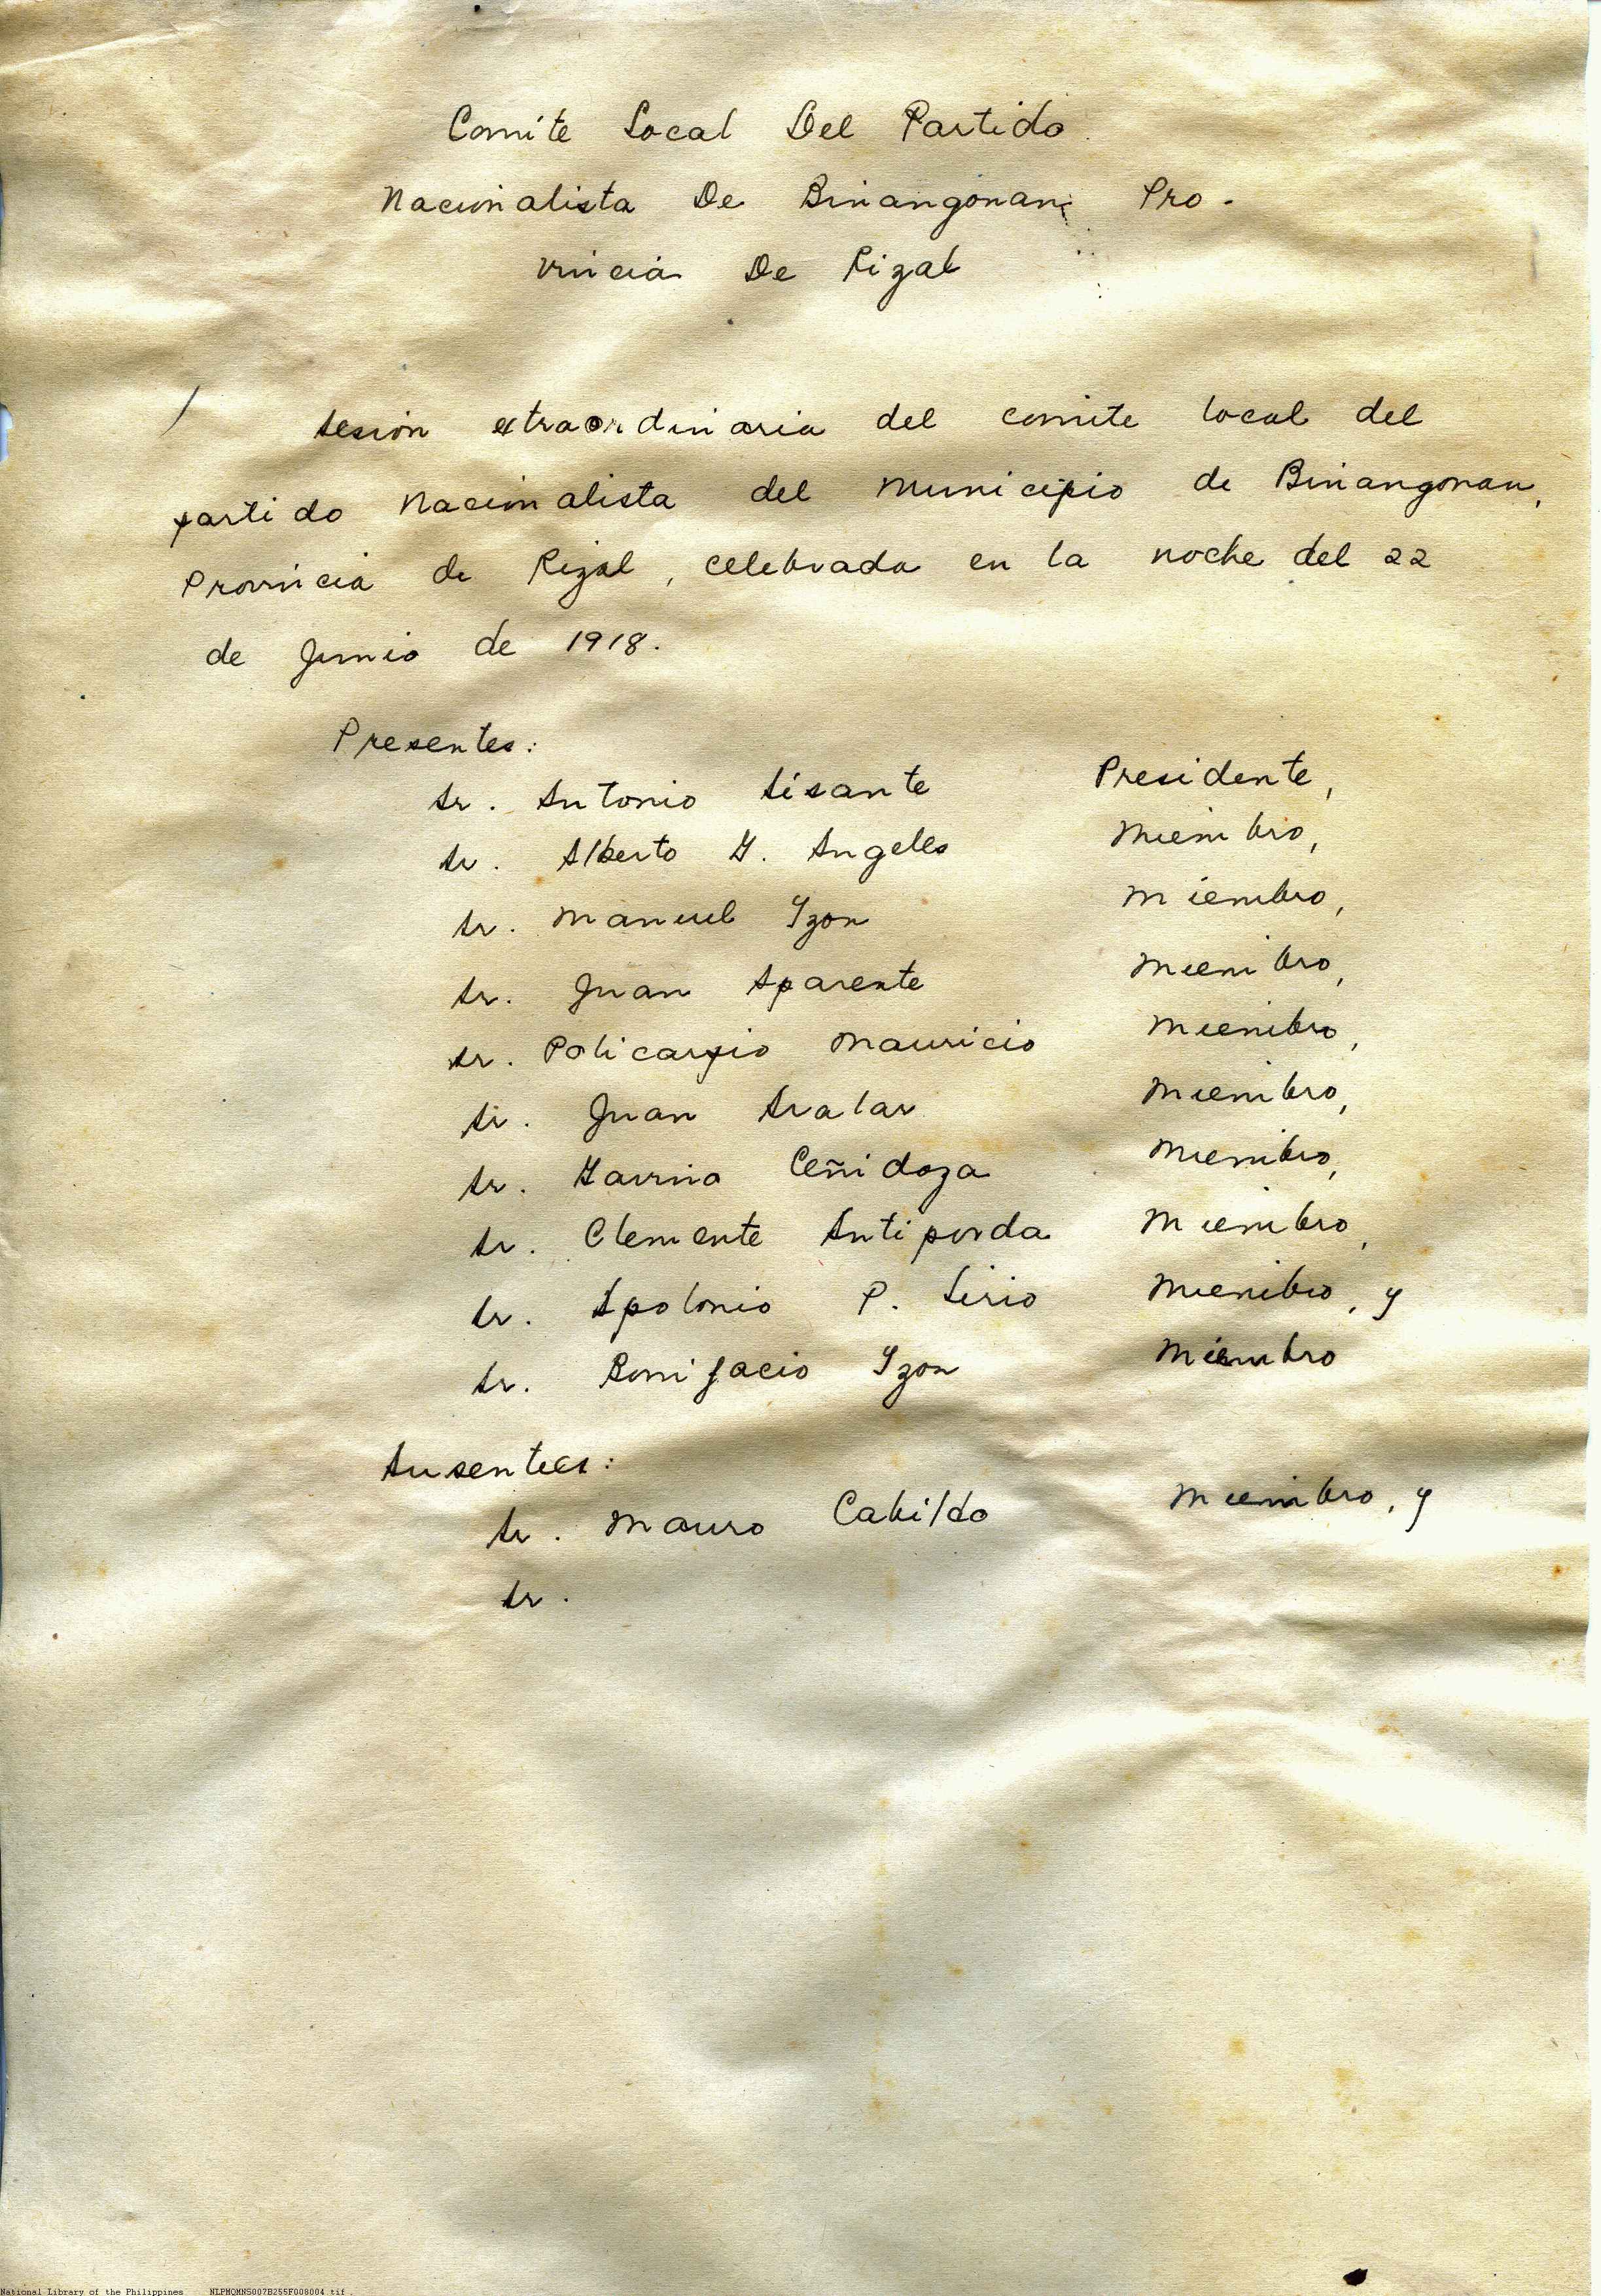 Comite Local Del Partido
Nacionalista De Binangonan, Pro-
vincia De Rizal
Sesion extraordinaria del comite local del
partido Nacionalista del Municipio de Binangonan,
Provincia de Rizal, celebrada en la noche del 22
de Junio de 1918.
Presentes:
Sr. Antonio Sisante Presidente,
Sr. Alberto G. Angeles Miembro,
Sr. Manuel Yzon Miembro,
Sr. Juan Aparente Miembro,
Sr. Policarpio Mauricio Miembro,
Sr. Juan Miembro,
Sr. Ceñidoza Miembro,
Sr. Clemente Antiporda Miembro,
Sr. Apolonio P. Sirio Miembro, y
Sr. Bonifacio Yzon Miembro
Ausentes:
Sr. Mauro Cabildo Miembro, y
Sr.
National Library of the Philippines NLPMQMNS007B255F008004.tif